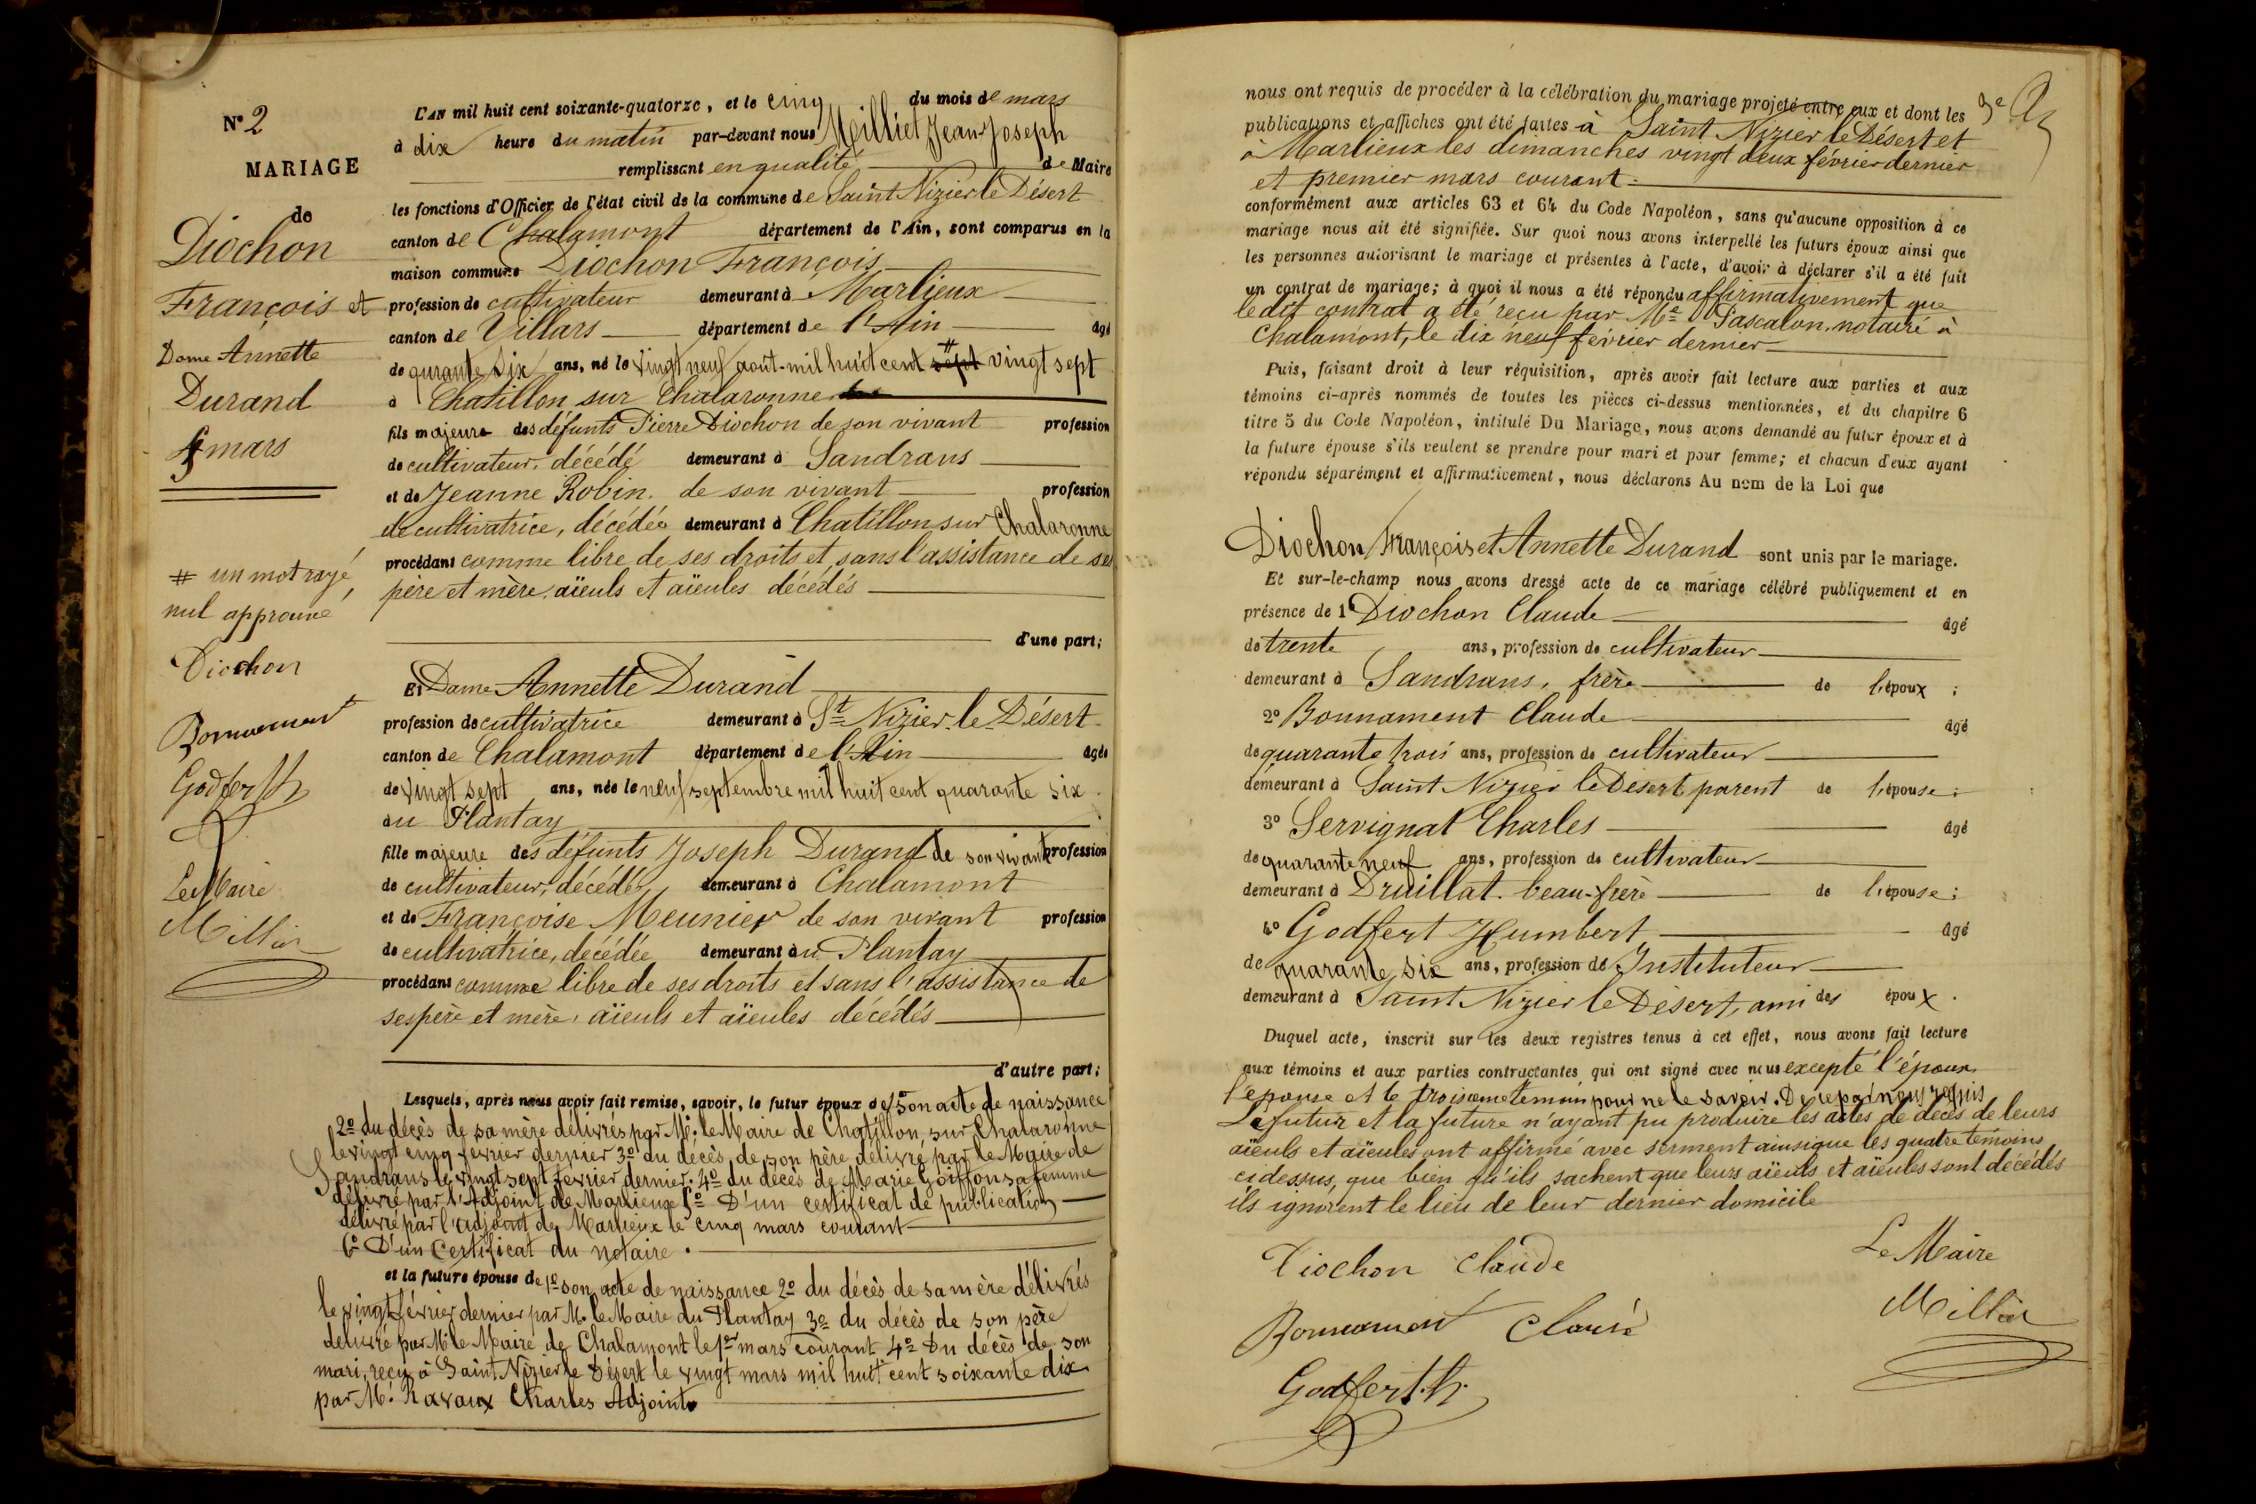 N° 2
MARIAGE
de
Diochon
François et
Dame Annette
Durand
5 mars
# un mot rayé,
nul approuvé
Diochon
Bonnament
Godfert h
Le Maire
Milliet
L'AN mil huit cent soixante-quatorze, et le cinq du mois de mars
à dix heure du matin par-devant nous Milliet Jean-Joseph
remplissant en qualité de Maire
les fonctions d'Officier de l'état civil de la commune de Saint Nizier le Désert
canton de Chalamont département de l'Ain, sont comparus en la
maison commune Diochon François
profession de cultivateur demeurant à Marlieux
canton de Villars département de l'Ain âgé
de qurante six ans, né le vingt neuf août mil huit cent sept vingt sept
à Chatillon sur Chalaronne
fils majeur des défunts Pierre Diochon de son vivant profession
de cultivateur, décédé demeurant à Sandrans
et de Jeanne Robin de son vivant profession
de cultivatrice, décédée demeurant à Chatillon sur Chalaronne
procédant comme libre de ses droits et sans l'assistance de ses
père et mère, aïeuls et aïeules décédés
d'une part;
Et Dame Annette Durand
profession de cultivatrice demeurant à St Nizier-le-Désert
canton de Chalamont département de l'Ain âgée
de vingt sept ans, née le neuf septembre mil huit cent quarante six
au Plantay
fille majeure des défunts Joseph Durand de son vivant profession
de cultivateur, décédé demeurant à Chalamont
et de Françoise Meunier de son vivant profession
de cultivatrice, décédée demeurant au Plantay
procédant comme libre de ses droits et sans l'assistance de
ses père et mère, aïeuls et aïeules décédés
d'autre part;
Lesquels, après nous avoir fait remise, savoir, le futur époux de 1° son acte de naissance
2° du décès de sa mère délivrés par M. le Maire de Chatillon sur Chalaronne
le vingt cinq fevrier dernier 3° du décès de son père délivré par le Maire de
Sandrans le vingt sept février dernier. 4° du décès de Marie Goiffon sa femme
délivré par l'Adjoint de Marlieux 5° D'un certificat de publication
délivré par l'adjoint de Marlieux le cinq mars courant
6° D'un certificat du notaire.
et la future épouse de 1° son acte de naissance 2° du décès de sa mère délivrés
le vingt février dernier par M. le Maire du Plantay 3° du décès de son père
délivré par M. le Maire de Chalamont le 1er mars courant 4° Du décès de son
mari, reçu à Saint Nizier le Désert le vingt mars mil huit cent soixante dix
par M. Ravaux Charles Adjoint
nous ont requis de procéder à la célébration du mariage projeté entre eux et dont les
publications et affiches ont été faites à Saint Nizier le Désert et
à Marlieux les dimanches vingt deux février dernier
et premier mars courant.
conformément aux articles 63 et 64 du Code Napoléon, sans qu'aucune opposition à ce
mariage nous ait été signifiée. Sur quoi nous avons interpellé les futurs époux ainsi que
les personnes autorisant le mariage et présentes à l'acte, d'avoir à déclarer s'il a été fait
un contrat de mariage; à quoi il nous a été répondu affirmativement que
le dit contrat a été reçu par Me Pascalon, notaire à
Chalamont, le dix neuf février dernier
Puis, faisant droit à leur réquisition, après avoir fait lecture aux parties et aux
témoins ci-après nommés de toutes les pièces ci-dessus mentionnées, et du chapitre 6
titre 5 du Code Napoléon, intitulé Du Mariage, nous avons demandé au futur époux et à
la future épouse s'ils veulent se prendre pour mari et pour femme; et chacun d'eux ayant
répondu séparément et affirmativement, nous déclarons Au nom de la Loi que
Diochon François et Annette Durand sont unis par le mariage.
Et sur-le-champ nous avons dressé acte de ce mariage célébré publiquement et en
présence de 1° Diochon Claude âgé
de trente ans, profession de cultivateur
demeurant à Sandrans, frère de l'époux ;
2° Bonnament Claude âgé
de quarante trois ans, profession de cultivateur
demeurant à Saint Nizier le Désert parent de l'épouse;
3° Servignat Charles âgé
de quarante neuf ans, profession de cultivateur
demeurant à Druillat. beau-frère de l'épouse;
4° Godfert Humbert âgé
de quarante six ans, profession de Instituteur
demeurant à Saint Nizier le Désert, ami des époux.
Duquel acte, inscrit sur les deux registres tenus à cet effet, nous avons fait lecture
aux témoins et aux parties contractantes qui ont signé avec nous excepté l'époux
l'épouse et le troisième témoin pour ne le savoir. De ce par nous requis
Le futur et la future n'ayant pu produire les actes de décès de leurs
aïeuls et aïeules ont affirmé avec serment ainsi que les quatre témoins
ci dessus, que bien qu'ils sachent que leurs aïeuls et aïeules sont décédés
ils ignorent le lieu de leur dernier domicile
Diochon Claude
Le Maire
Milliet
Bonnament Claude
Godfert. h.